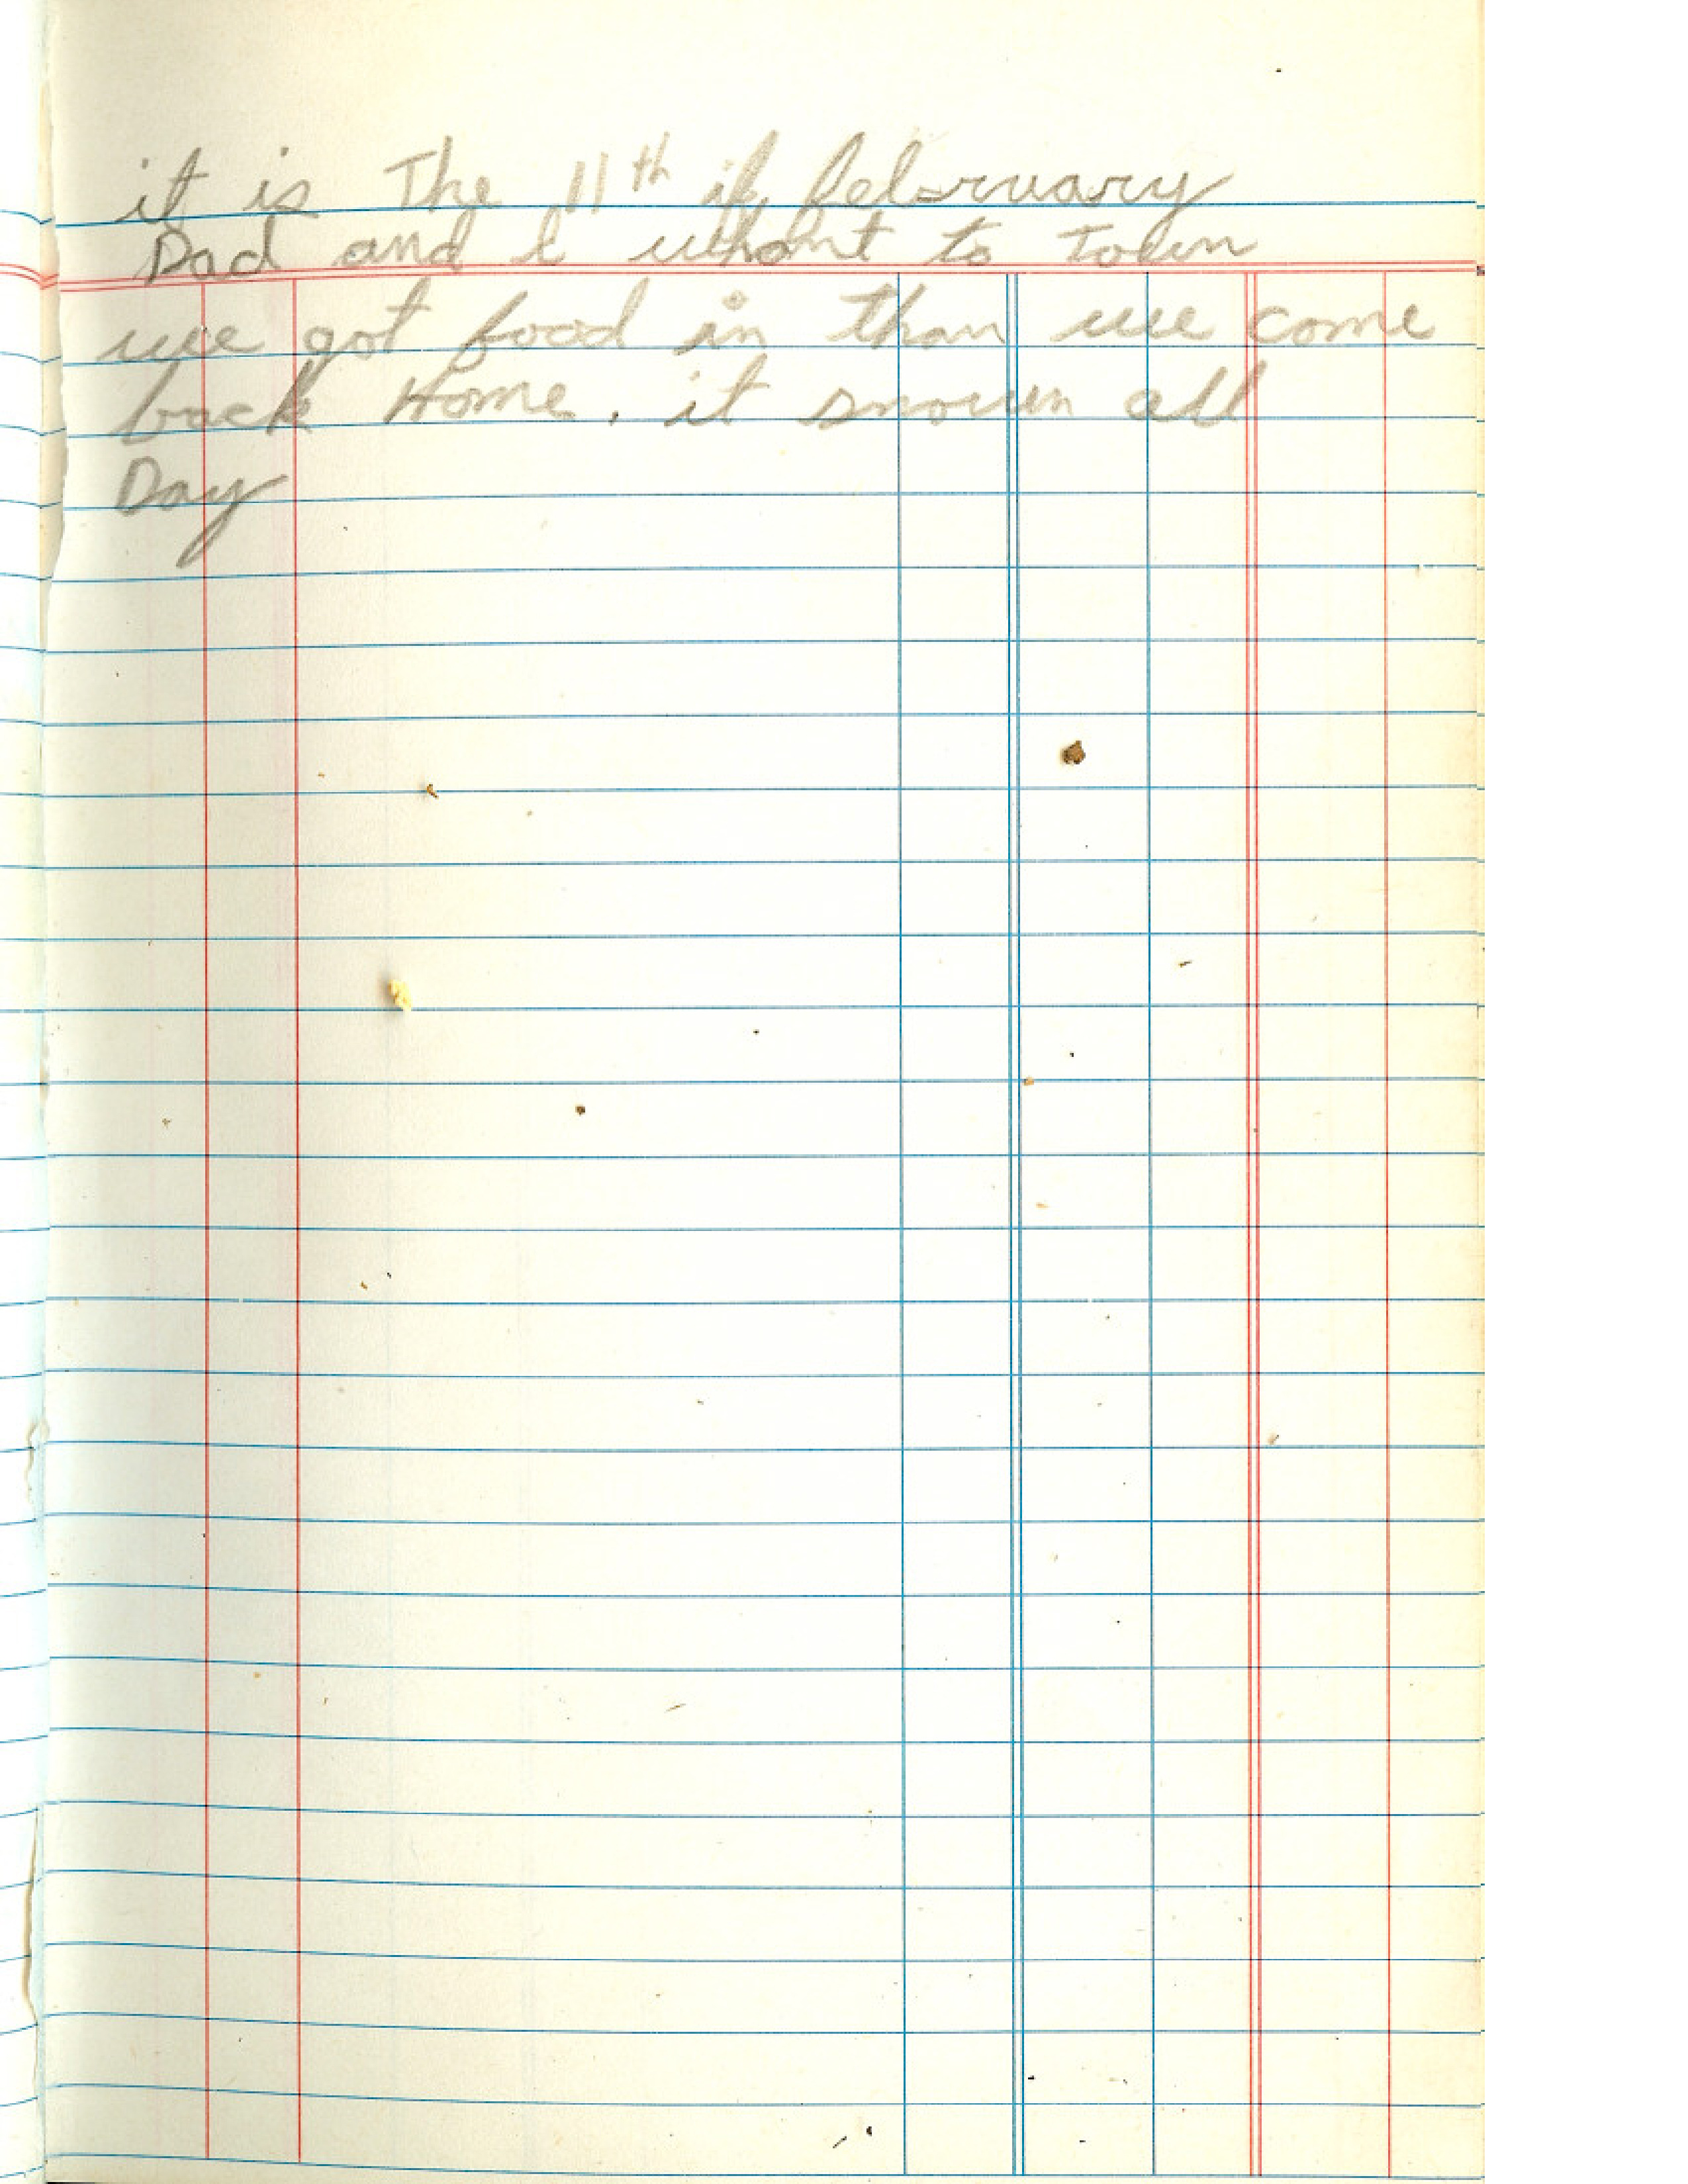 it is The 11th if february
Dad and I whant to Town
we got food in than we come
back Home. it snown all
Day